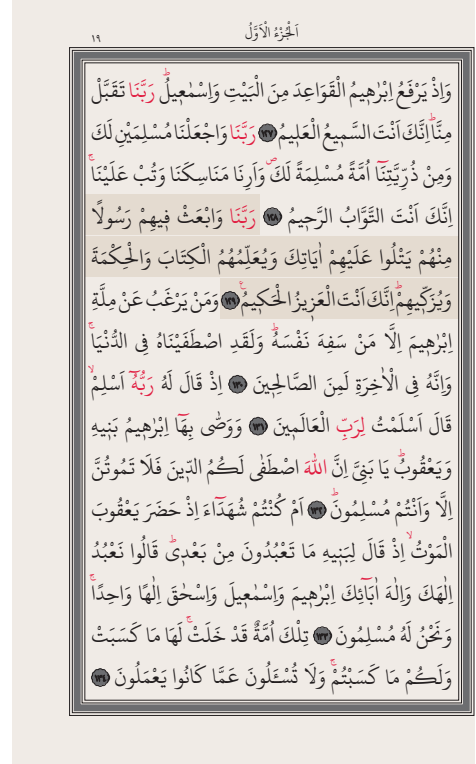 ١٩
اَلْجُزْءُ الْاَوَّلُ
وَاِذْ يَرْفَعُ اِبْرٰهٖيمُ الْقَوَاعِدَ مِنَ الْبَيْتِ وَاِسْمٰعٖيلُؕ رَبَّنَا تَقَبَّلْ
مِنَّاؕ اِنَّكَ اَنْتَ السَّمٖيعُ الْعَلٖيمُ ﴿١٢٧﴾ رَبَّنَا وَاجْعَلْنَا مُسْلِمَيْنِ لَكَ
وَمِنْ ذُرِّيَّتِنَٓا اُمَّةً مُسْلِمَةً لَكَࣕ وَاَرِنَا مَنَاسِكَنَا وَتُبْ عَلَيْنَاۚ
اِنَّكَ اَنْتَ التَّوَّابُ الرَّحٖيمُ ﴿١٢٨﴾ رَبَّنَا وَابْعَثْ فٖيهِمْ رَسُولًا
مِنْهُمْ يَتْلُوا عَلَيْهِمْ اٰيَاتِكَ وَيُعَلِّمُهُمُ الْكِتَابَ وَالْحِكْمَةَ
وَيُزَكّٖيهِمْؕ اِنَّكَ اَنْتَ الْعَزٖيزُ الْحَكٖيمُࣖ ﴿١٢٩﴾ وَمَنْ يَرْغَبُ عَنْ مِلَّةِ
اِبْرٰهٖيمَ اِلَّا مَنْ سَفِهَ نَفْسَهُؕ وَلَقَدِ اصْطَفَيْنَاهُ فِى الدُّنْيَاۚ
وَاِنَّهُ فِى الْاٰخِرَةِ لَمِنَ الصَّالِحٖينَ ﴿١٣٠﴾ اِذْ قَالَ لَهُ رَبُّهُٓ اَسْلِمْۙ
قَالَ اَسْلَمْتُ لِرَبِّ الْعَالَمٖينَ ﴿١٣١﴾ وَوَصّٰى بِهَٓا اِبْرٰهٖيمُ بَنٖيهِ
وَيَعْقُوبُؕ يَا بَنِىَّ اِنَّ اللّٰهَ اصْطَفٰى لَكُمُ الدّٖينَ فَلَا تَمُوتُنَّ
اِلَّا وَاَنْتُمْ مُسْلِمُونَؕ ﴿١٣٢﴾ اَمْ كُنْتُمْ شُهَدَٓاءَ اِذْ حَضَرَ يَعْقُوبَ
الْمَوْتُۙ اِذْ قَالَ لِبَنٖيهِ مَا تَعْبُدُونَ مِنْ بَعْدٖىؕ قَالُوا نَعْبُدُ
اِلٰهَكَ وَاِلٰهَ اٰبَٓائِكَ اِبْرٰهٖيمَ وَاِسْمٰعٖيلَ وَاِسْحٰقَ اِلٰهًا وَاحِدًاۚ
وَنَحْنُ لَهُ مُسْلِمُونَ ﴿١٣٣﴾ تِلْكَ اُمَّةٌ قَدْ خَلَتْۚ لَهَا مَا كَسَبَتْ
وَلَكُمْ مَا كَسَبْتُمْۚ وَلَا تُسْـَٔلُونَ عَمَّا كَانُوا يَعْمَلُونَ ﴿١٣٤﴾